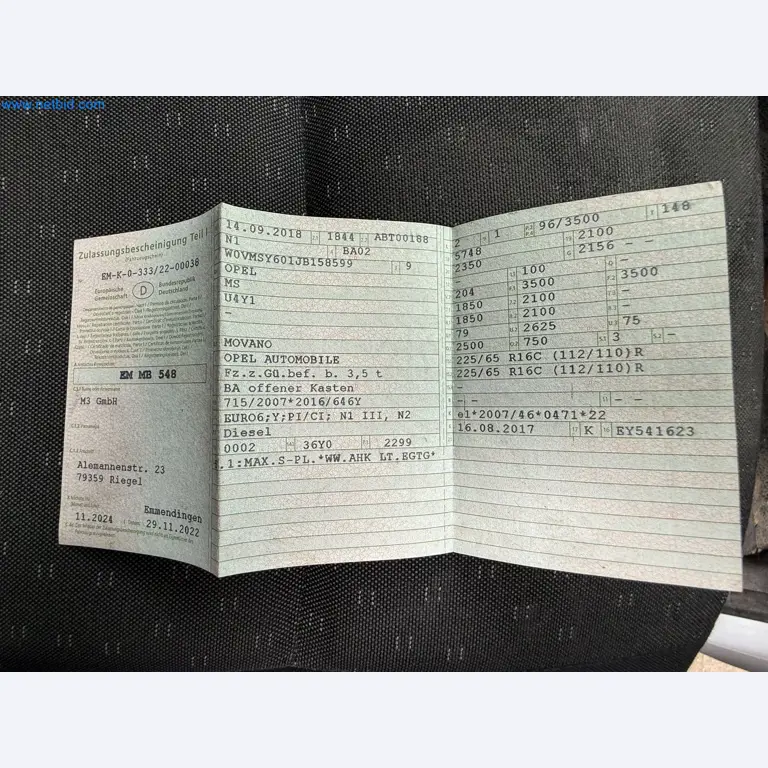 www.netbid.com
Zulassungsbescheinigung Teil I
(Fahrzeugschein)
Nr. EM-K-0-333/22-00038
Europäische Gemeinschaft
D
Bundesrepublik Deutschland
EM MB 548
M3 GmbH
Alemannenstr. 23
79359 Riegel
Emmendingen
11.2024
29.11.2022
14.09.2018 1844 ABT00188
N1 BA02
W0VMSY601JB158599 9
OPEL
MS
U4Y1
–
MOVANO
OPEL AUTOMOBILE
Fz.z.Gü.bef. b. 3,5 t
BA offener Kasten
715/2007*2016/646Y
EURO6;Y;PI/CI; N1 III, N2
Diesel
0002 36Y0 2299
.1:MAX.S-PL.*WW.AHK LT.EGTG*
2 1 96/3500 148
5748 2100
2350 2156 – –
100 –
204 3500 3500
1850 2100 –
1850 2100 –
79 2625 75
2500 750 3 –
225/65 R16C (112/110)R
225/65 R16C (112/110)R
–
– – – –
e1*2007/46*0471*22
16.08.2017 K EY541623